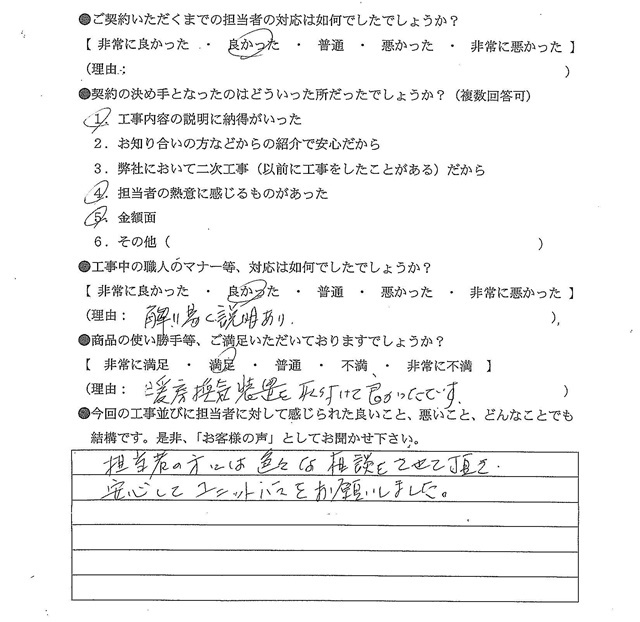 ●ご契約いただくまでの担当者の対応は如何でしたでしょうか？
【 非常に良かった ・ 良かった ・ 普通 ・ 悪かった ・ 非常に悪かった 】
（理由： ）
●契約の決め手となったのはどういった所だったでしょうか？（複数回答可）
1．工事内容の説明に納得がいった
2．お知り合いの方などからの紹介で安心だから
3．弊社において二次工事（以前に工事をしたことがある）だから
4．担当者の熱意に感じるものがあった
5．金額面
6．その他（ ）
●工事中の職人のマナー等、対応は如何でしたでしょうか？
【 非常に良かった ・ 良かった ・ 普通 ・ 悪かった ・ 非常に悪かった 】
（理由： 解り易く説明あり． ）
●商品の使い勝手等、ご満足いただいておりますでしょうか？
【 非常に満足 ・ 満足 ・ 普通 ・ 不満 ・ 非常に不満 】
（理由： 暖房換気装置を取り付けて良かったです． ）
●今回の工事並びに担当者に対して感じられた良いこと、悪いこと、どんなことでも
結構です。是非、「お客様の声」としてお聞かせ下さい。
担当者の方には色々な相談をさせて頂き．
安心してユニットバスをお願いしました。